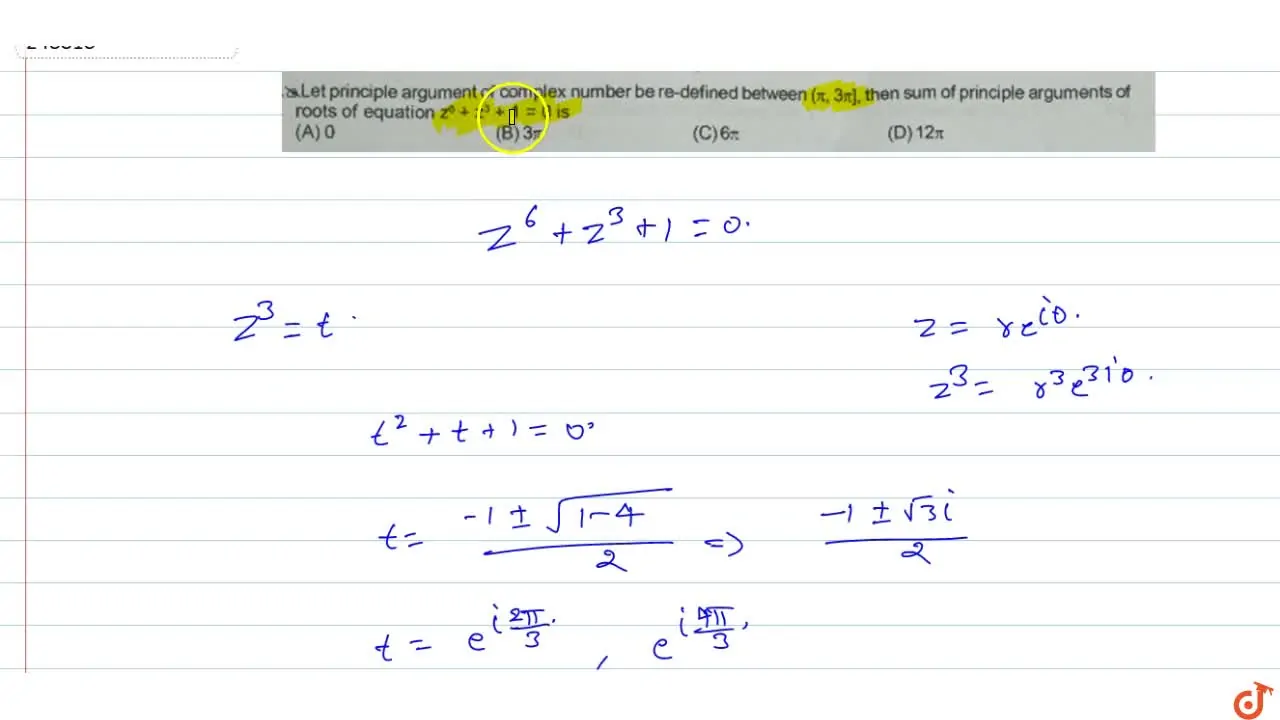 Let principle argument of complex number be re-defined between (π, 3π], then sum of principle arguments of
roots of equation z⁶ + z³ + 1 = 0 is
(A) 0 (B) 3π (C) 6π (D) 12π
z⁶ + z³ + 1 = 0.
z³ = t. z = re^{iθ}.
z³ = r³e^{3iθ}.
t² + t + 1 = 0.
t = (-1 ± √(1-4))/2 ⇒ (-1 ± √3i)/2
t = e^{i2π/3}, e^{i4π/3},